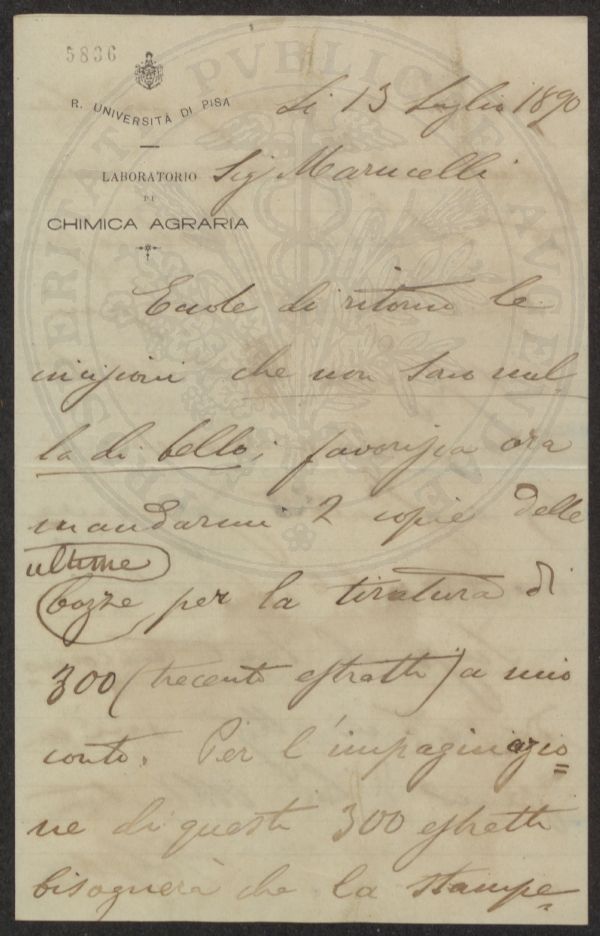 5836
R. UNIVERSITÀ DI PISA
LABORATORIO
DI
CHIMICA AGRARIA
PVBLICAE
AVGENDAE
PROSPERITATI
Li 13 Luglio 1890
Sig Marucelli
Eccole di ritorno le
incisioni che non sono nul-
la di bello; favorisca ora
mandarmi 2 copie delle
ultime
bozze, per la tiratura di
300 (trecento estratti) a mio
conto. Per l'impaginazio=
ne di questi 300 estratti
bisognerà che la stampe=